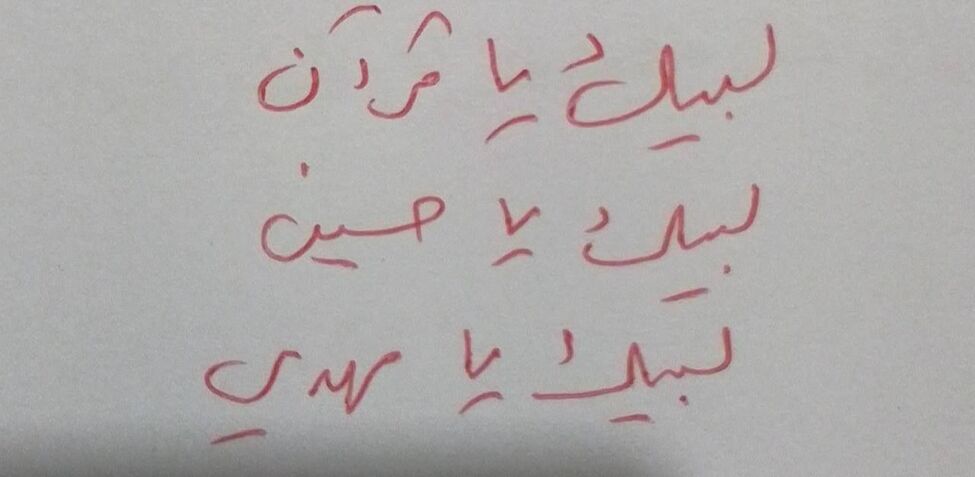 لبيك يا قرآن
لبيك يا حسين
لبيك يا مهدي